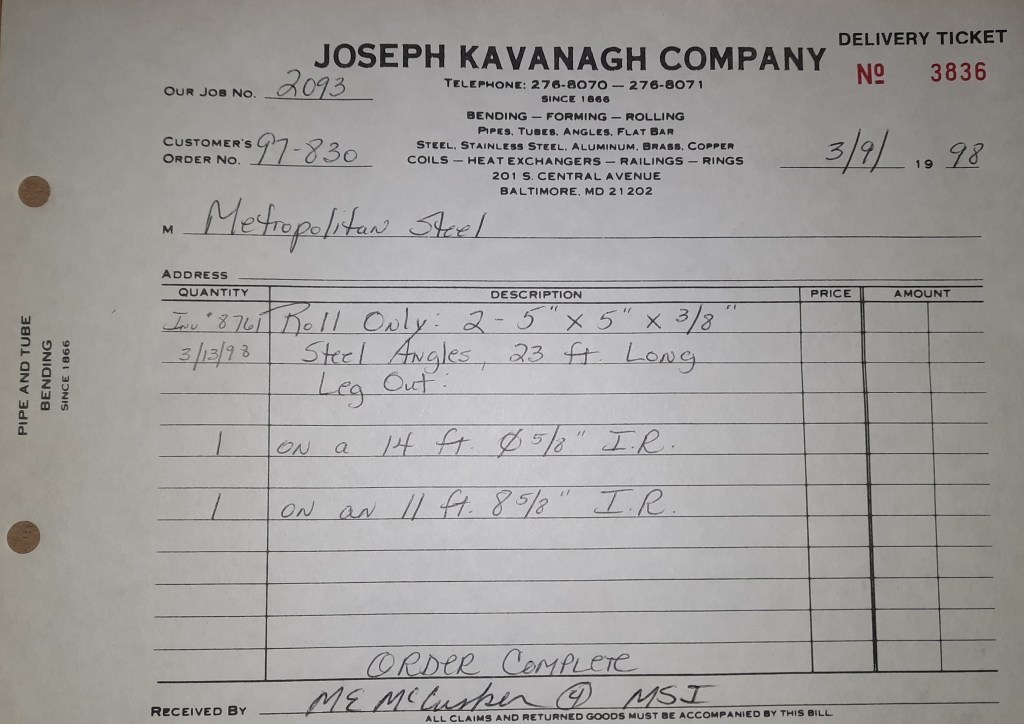 DELIVERY TICKET
JOSEPH KAVANAGH COMPANY
Nº 3836
OUR JOB No. 2093
TELEPHONE: 276-8070 — 276-8071
SINCE 1866
BENDING — FORMING — ROLLING
PIPES, TUBES, ANGLES, FLAT BAR
CUSTOMER'S ORDER No. 97-830
STEEL, STAINLESS STEEL, ALUMINUM, BRASS, COPPER
COILS — HEAT EXCHANGERS — RAILINGS — RINGS
3/9/ 19 98
201 S. CENTRAL AVENUE
BALTIMORE, MD 21202
M Metropolitan Steel
ADDRESS
QUANTITY DESCRIPTION PRICE AMOUNT
Inv # 8761 Roll Only: 2 - 5" x 5" x 3/8"
3/13/98 Steel Angles, 23 ft. Long
Leg Out:
1 on a 14 ft. Ø 5/8" I.R.
1 on an 11 ft. 8 5/8" I.R.
ORDER COMPLETE
RECEIVED BY ME McCusker @ MSI
ALL CLAIMS AND RETURNED GOODS MUST BE ACCOMPANIED BY THIS BILL
PIPE AND TUBE
BENDING
SINCE 1866